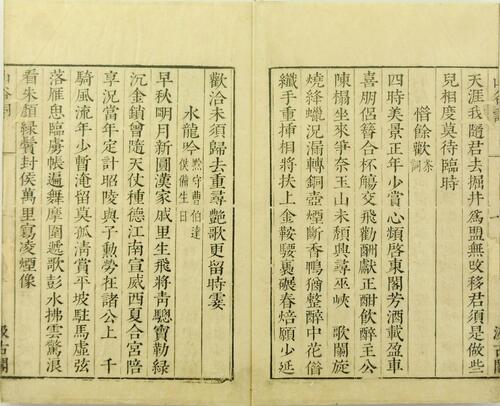 天涯我隨君去掘井爲盟無改移君須是做些
兒相度莫待臨時
惜餘歡茶詞
四時美景正年少賞心頻啓東閣芳酒載盈車
喜朋侶簪合杯觴交飛勸酬獻正酣飲醉主公
陳榻坐來爭奈玉山未頹興尋巫峽 歌闌旋
燒絳蠟況漏轉銅壺煙斷香鴨猶整醉中花借
纖手重揷相將扶上金鞍騕褭碾春焙願少延
歡洽未須歸去重尋艷歌更留時霎
水龍吟黔守曹伯達供備生日
早秋明月新圓漢家戚里生飛將青驄寶勒緑
沉金鎖曾隨天仗種德江南宣威西夏合宮陪
享況當年定計昭陵與子勲勞在諸公上 千
騎風流年少暫淹留莫孤清賞平坡駐馬虛弦
落雁思臨虜帳遍舞摩圍遞歌彭水拂雲驚浪
看朱顔緑鬢封侯萬里寫凌煙像
汲古閣